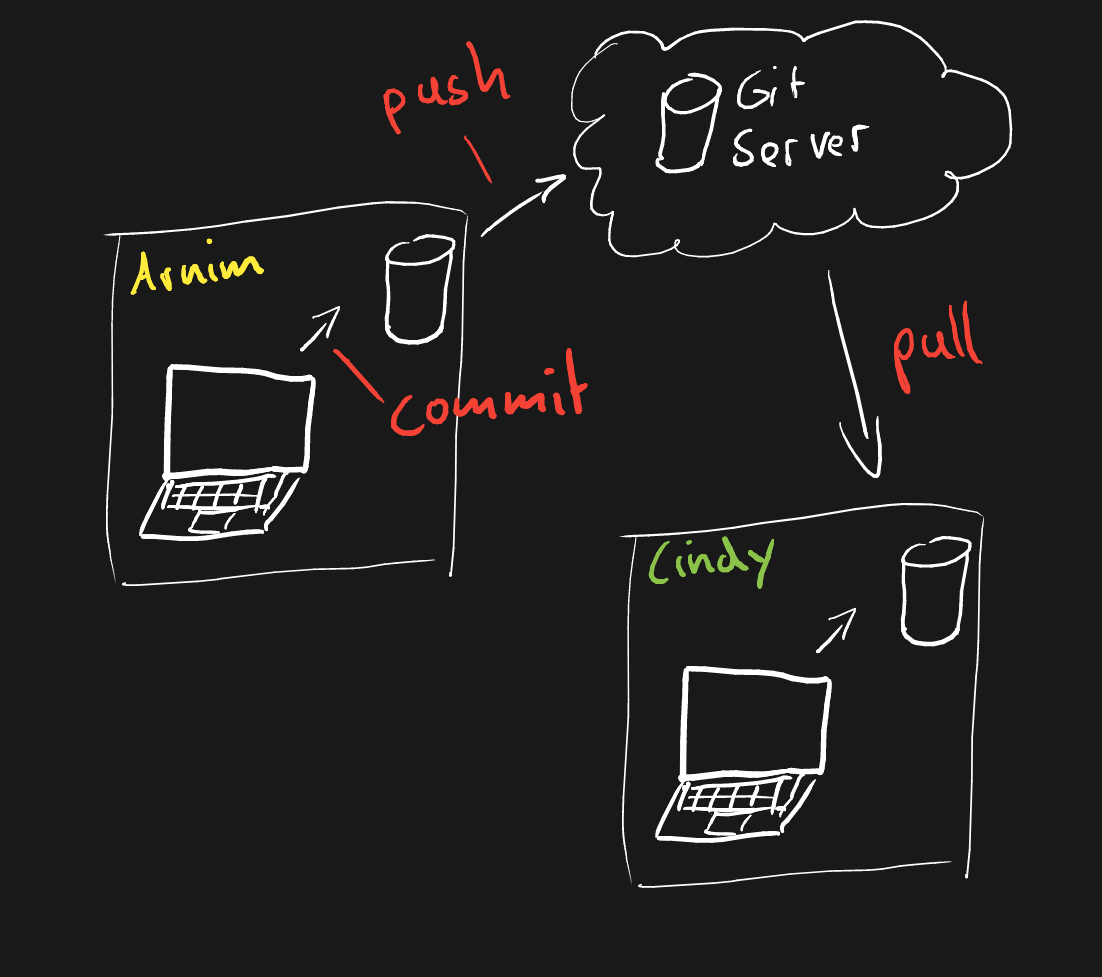 push
Git
Server
Arnim
commit
pull
Cindy